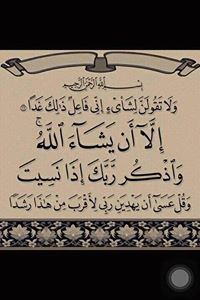 بِسْمِ اللَّهِ الرَّحْمَٰنِ الرَّحِيمِ
وَلَا تَقُولَنَّ لِشَا۟ىْءٍ إِنِّى فَاعِلٌ ذَٰلِكَ غَدًا
إِلَّآ أَن يَشَآءَ ٱللَّهُ ۚ
وَٱذْكُر رَّبَّكَ إِذَا نَسِيتَ
وَقُلْ عَسَىٰٓ أَن يَهْدِيَنِ رَبِّى لِأَقْرَبَ مِنْ هَٰذَا رَشَدًا